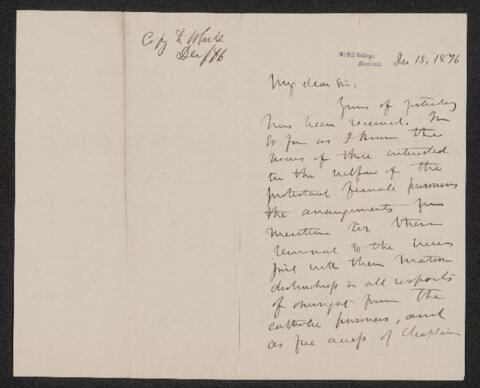 Copy to White
Dec /76
McGill College,
Montreal
Dec 15, 1876
My dear Sir,
Yours of yesterday
has been received. In
so far as I know the
views of those interested
in the welfare of the
protestant female prisoners
the arrangements you
mention for their
removal to the new
jail with their matron
in all respects
of from the
catholic prisoners, and
as free access of chaplain